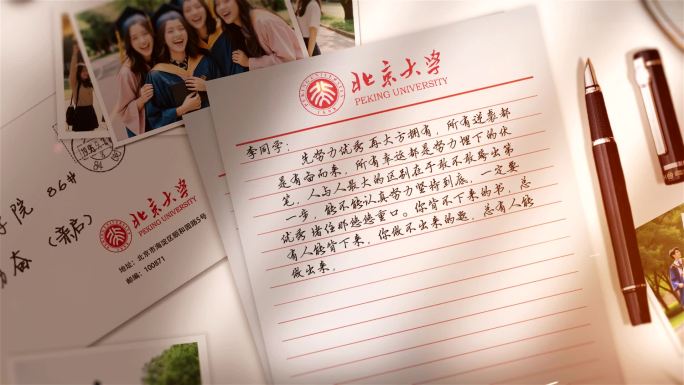 北京大学
PEKING UNIVERSITY
李同学:
先努力优秀再大方拥有，所有逆袭都
是有备而来，所有幸运都是努力埋下的伏
笔，人与人最大的区别在于敢不敢踏出第
一步，能不能认真努力坚持到底，一定要
优秀堵住那悠悠重口。你背不下来的书，总
有人能背下来，你做不出来的题，总有人能
做出来。
学院 86#
(亲启)
北京大学
PEKING UNIVERSITY
地址：北京市海淀区颐和园路5号
邮编：100871